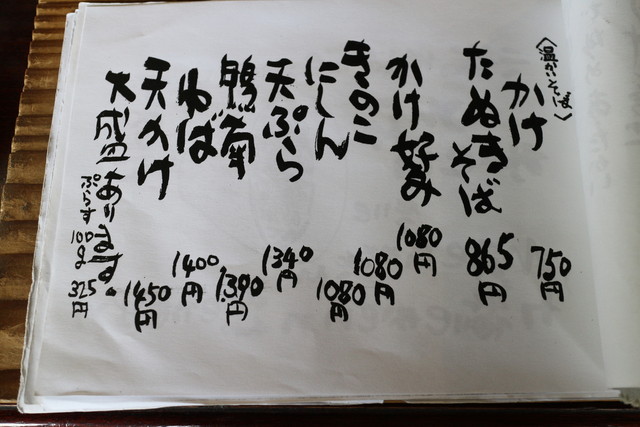 〈温かいそば〉
かけ 750円
たぬきそば 865円
かけ好み 1080円
きのこ 1080円
にしん 1080円
天ぷら 1340円
鴨南 1390円
ゆば 1400円
天かけ 1450円
大盛あります。
ぷらす100g 325円